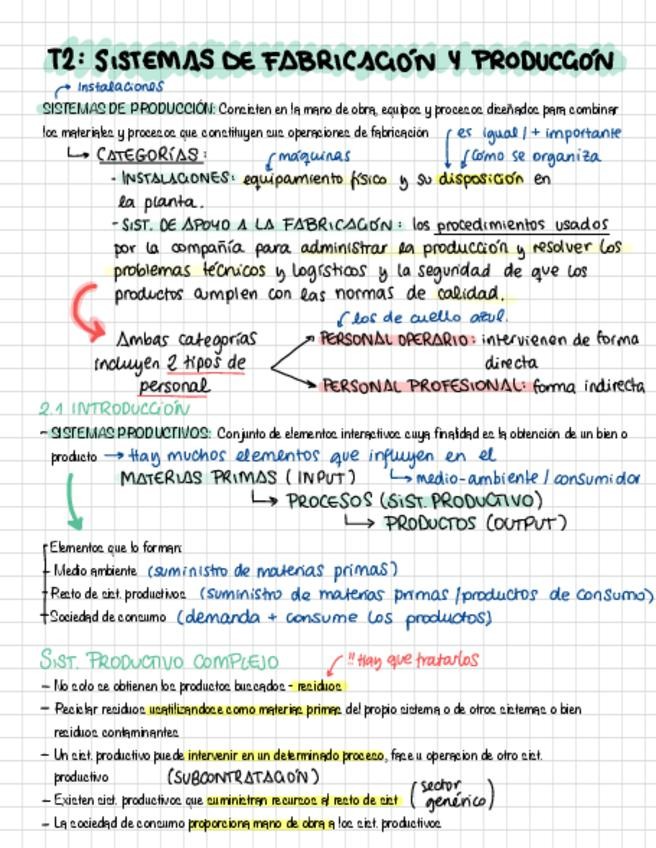 T2: SISTEMAS DE FABRICACIÓN Y PRODUCCIÓN
Instalaciones
SISTEMAS DE PRODUCCIÓN: Consisten en la mano de obra, equipos y procesos diseñados para combinar
los materiales y procesos que constituyen sus operaciones de fabricación
es igual / + importante
↳ CATEGORÍAS:
máquinas
cómo se organiza
- INSTALACIONES: equipamiento físico y su disposición en
la planta.
- SIST. DE APOYO A LA FABRICACIÓN: los procedimientos usados
por la compañía para administrar la producción y resolver los
problemas técnicos y logísticos y la seguridad de que los
productos cumplen con las normas de calidad.
los de cuello azul.
Ambas categorías
incluyen 2 tipos de
personal
PERSONAL OPERARIO: intervienen de forma
directa
PERSONAL PROFESIONAL: forma indirecta
2.1 INTRODUCCIÓN
- SISTEMAS PRODUCTIVOS: Conjunto de elementos interactivos cuya finalidad es la obtención de un bien o
producto → Hay muchos elementos que influyen en el
↳ medio-ambiente / consumidor
MATERIAS PRIMAS (INPUT)
↳ PROCESOS (SIST. PRODUCTIVO)
↳ PRODUCTOS (OUTPUT)
Elementos que lo forman:
- Medio ambiente (suministro de materias primas)
- Resto de sist. productivos (suministro de materias primas / productos de consumo)
- Sociedad de consumo (demanda + consume los productos)
SIST. PRODUCTIVO COMPLEJO
!! Hay que tratarlos
- No solo se obtienen los productos buscados - residuos
- Reciclar residuos usatilizandose como materias primas del propio sistema o de otros sistemas o bien
residuos contaminantes
- Un sist. productivo puede intervenir en un determinado proceso, fase u operacion de otro sist.
productivo (SUBCONTRATACIÓN)
- Existen sist. productivos que suministran recursos al resto de sist (sector
genérico)
- La sociedad de consumo proporciona mano de obra a los sist. productivos